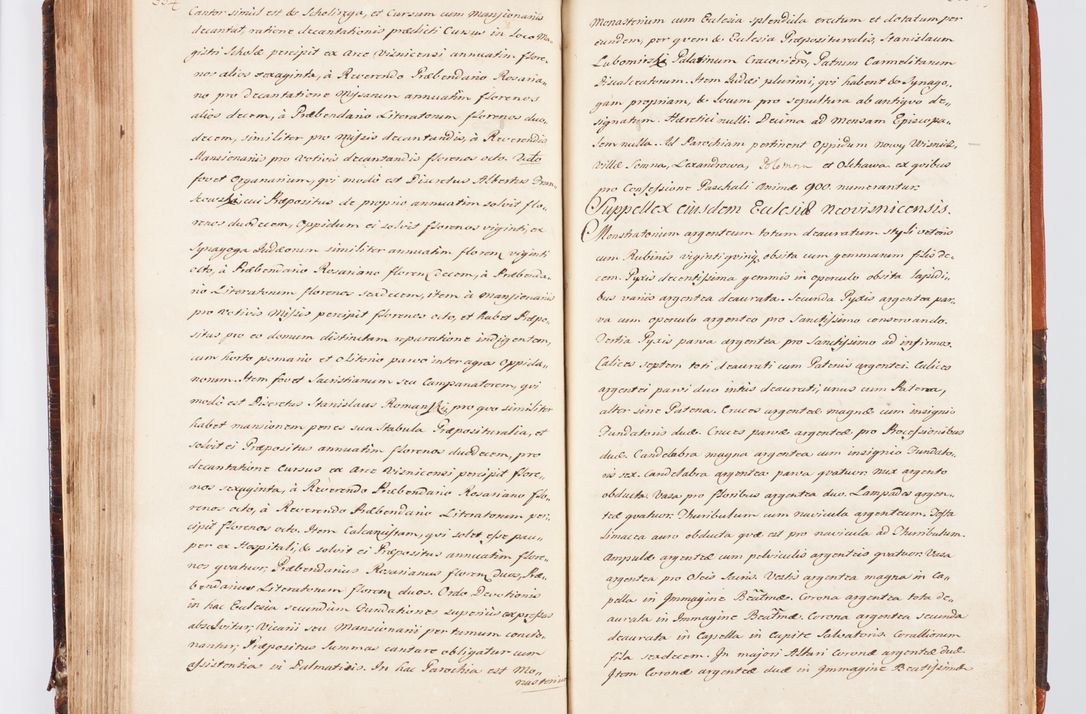 334
Cantor simul est de Scholirega, et Cursum cum Mansionariis
decantat, ratione decantationis praedicti Cursus in loco Ma„
gistri Scholae percipit ex Arce Visnicensi annuatim flore„
nos alios sexaginta, à Reverendo Praebendario Rosaria„
no pro decantatione Missarum annuatim florenos
alios decem, à Praebendario Literatorum florenos duo„
decem, similiter pro Missis decantandis, à Reverendis
Mansionariis pro Votivis decantandis florenos octo.
fovet Organarium, qui modò est Discretus Albertus
cui Praepositus de proprio annuatim solvit flo„
renos duodecem, Oppidum ei solvit florenos viginti, ex
Synagoga Judaeorum similiter annuatim floren viginti
octo, à Praebendario Rosariano floren decem, à Praebenda„
rio Literatorum florenos sexdecem, item à Mansionariis
pro votivis Missis percipit florenos octo, et habet Praepo„
situs pro eo domum distinctam reparatione indigentem,
cum horto pomario et olitorio parvo inter agros Oppida„
norum. Item fovet Sacristianum seu Campanatorem, qui
modò est Discretus Stanislaus Romanski, pro quo similiter
habet mansionem penes sua Stabula Praeposituralia, et
solvit ei Praepositus annuatim florenos duodecem, pro
decantatione Cursus ex Arce Visnicensi percipit flore„
nos sexaginta, à Reverendo Praebendario Rosariano flo„
renos octo, à Reverendo Praebendario Literatorum per„
cipit florenos octo. Item Calcantistam, qui solet esse pau„
per ex Hospitali, & solvit ei Praepositus annuatim flore„
nos quatuor, Praebendarius Rosarianus floren duos, Prae„
bendarius Literatorum floren duos. Ordo Devotionis
in hac Ecclesia secundum Fundationes superius expressas
absolvitur, Vicarii seu Mansionarii per turnum concio„
nantur, Praepositus Summas cantare obligatur cum
assistentia in Dalmaticis. In hac Parochia est Mo„
nasterium
Monasterium cum Ecclesia splendida erectum et dotatum per
eundem, per quem & Ecclesia Praeposituralis, Stanislaum
Lubomirski Palatinum Cracovien, Patrum Carmelitarum
Discalceatorum. Item Judaei plurimi, qui habent & Synago„
gam propriam, & locum pro sepultura ab antiquo de„
signatum. Haeretici nulli. Decima ad Mensam Episcopa„
lem nulla. Ad Parochiam pertinent Oppidum Nowy Wisnicz,
Villae Lomna, Lexandrowa, Kolomna et Olchawa ex quibus
pro Confessione Paschali Animae 900. numerantur.
Suppellex eiusdem Ecclesiae Neovisnicensis.
Monstratorium argenteum totum deauratum styli veteris
cum Rubinis viginti quinq; obsita cum gemmarum filis de„
cem. Pyxis decentissima gemmis in operculo obsita lapidi„
bus variis argentea deaurata. Secunda Pyxis argentea par„
va cum operculo argenteo pro Sanctissimo conservando.
Tertia Pyxis parva argentea pro Sanctissimo ad infirmos.
Calices septem toti deaurati cum Patenis argentei. Calices
argentei parvi duo intus deaurati, unus cum Patena,
alter sine Patena. Cruces argenteae magnae cum insignis
Fundatoris duae. Cruces parvae argenteae pro Processionibus
duae. Candelabra magna argentea cum insigniis Fundato„
ris sex. Candelabra argentea parva quatuor. Nux argento
obducta. Vasa pro floribus argentea duo. Lampades argen„
teae quatuor. Thuribulum cum navicula argenteum. Testa
limacea auro obducta quae est pro navicula ad Thuribulum.
Ampulae argenteae cum pelviculis argenteis quatuor. Vasa
argentea pro Oleis Sacris. Vestis argentea magna in Ca„
pella in Immagine Beatmae. Corona argentea tota de„
aurata in Immagine Beatmae. Corona argentea secunda
deaurata in Capella in Capite Salvatoris. Corallorum
fila sexdecem. In majori Altari Coronae argenteae duae.
Item Coronae argenteae duae in Immagine Beatissimae